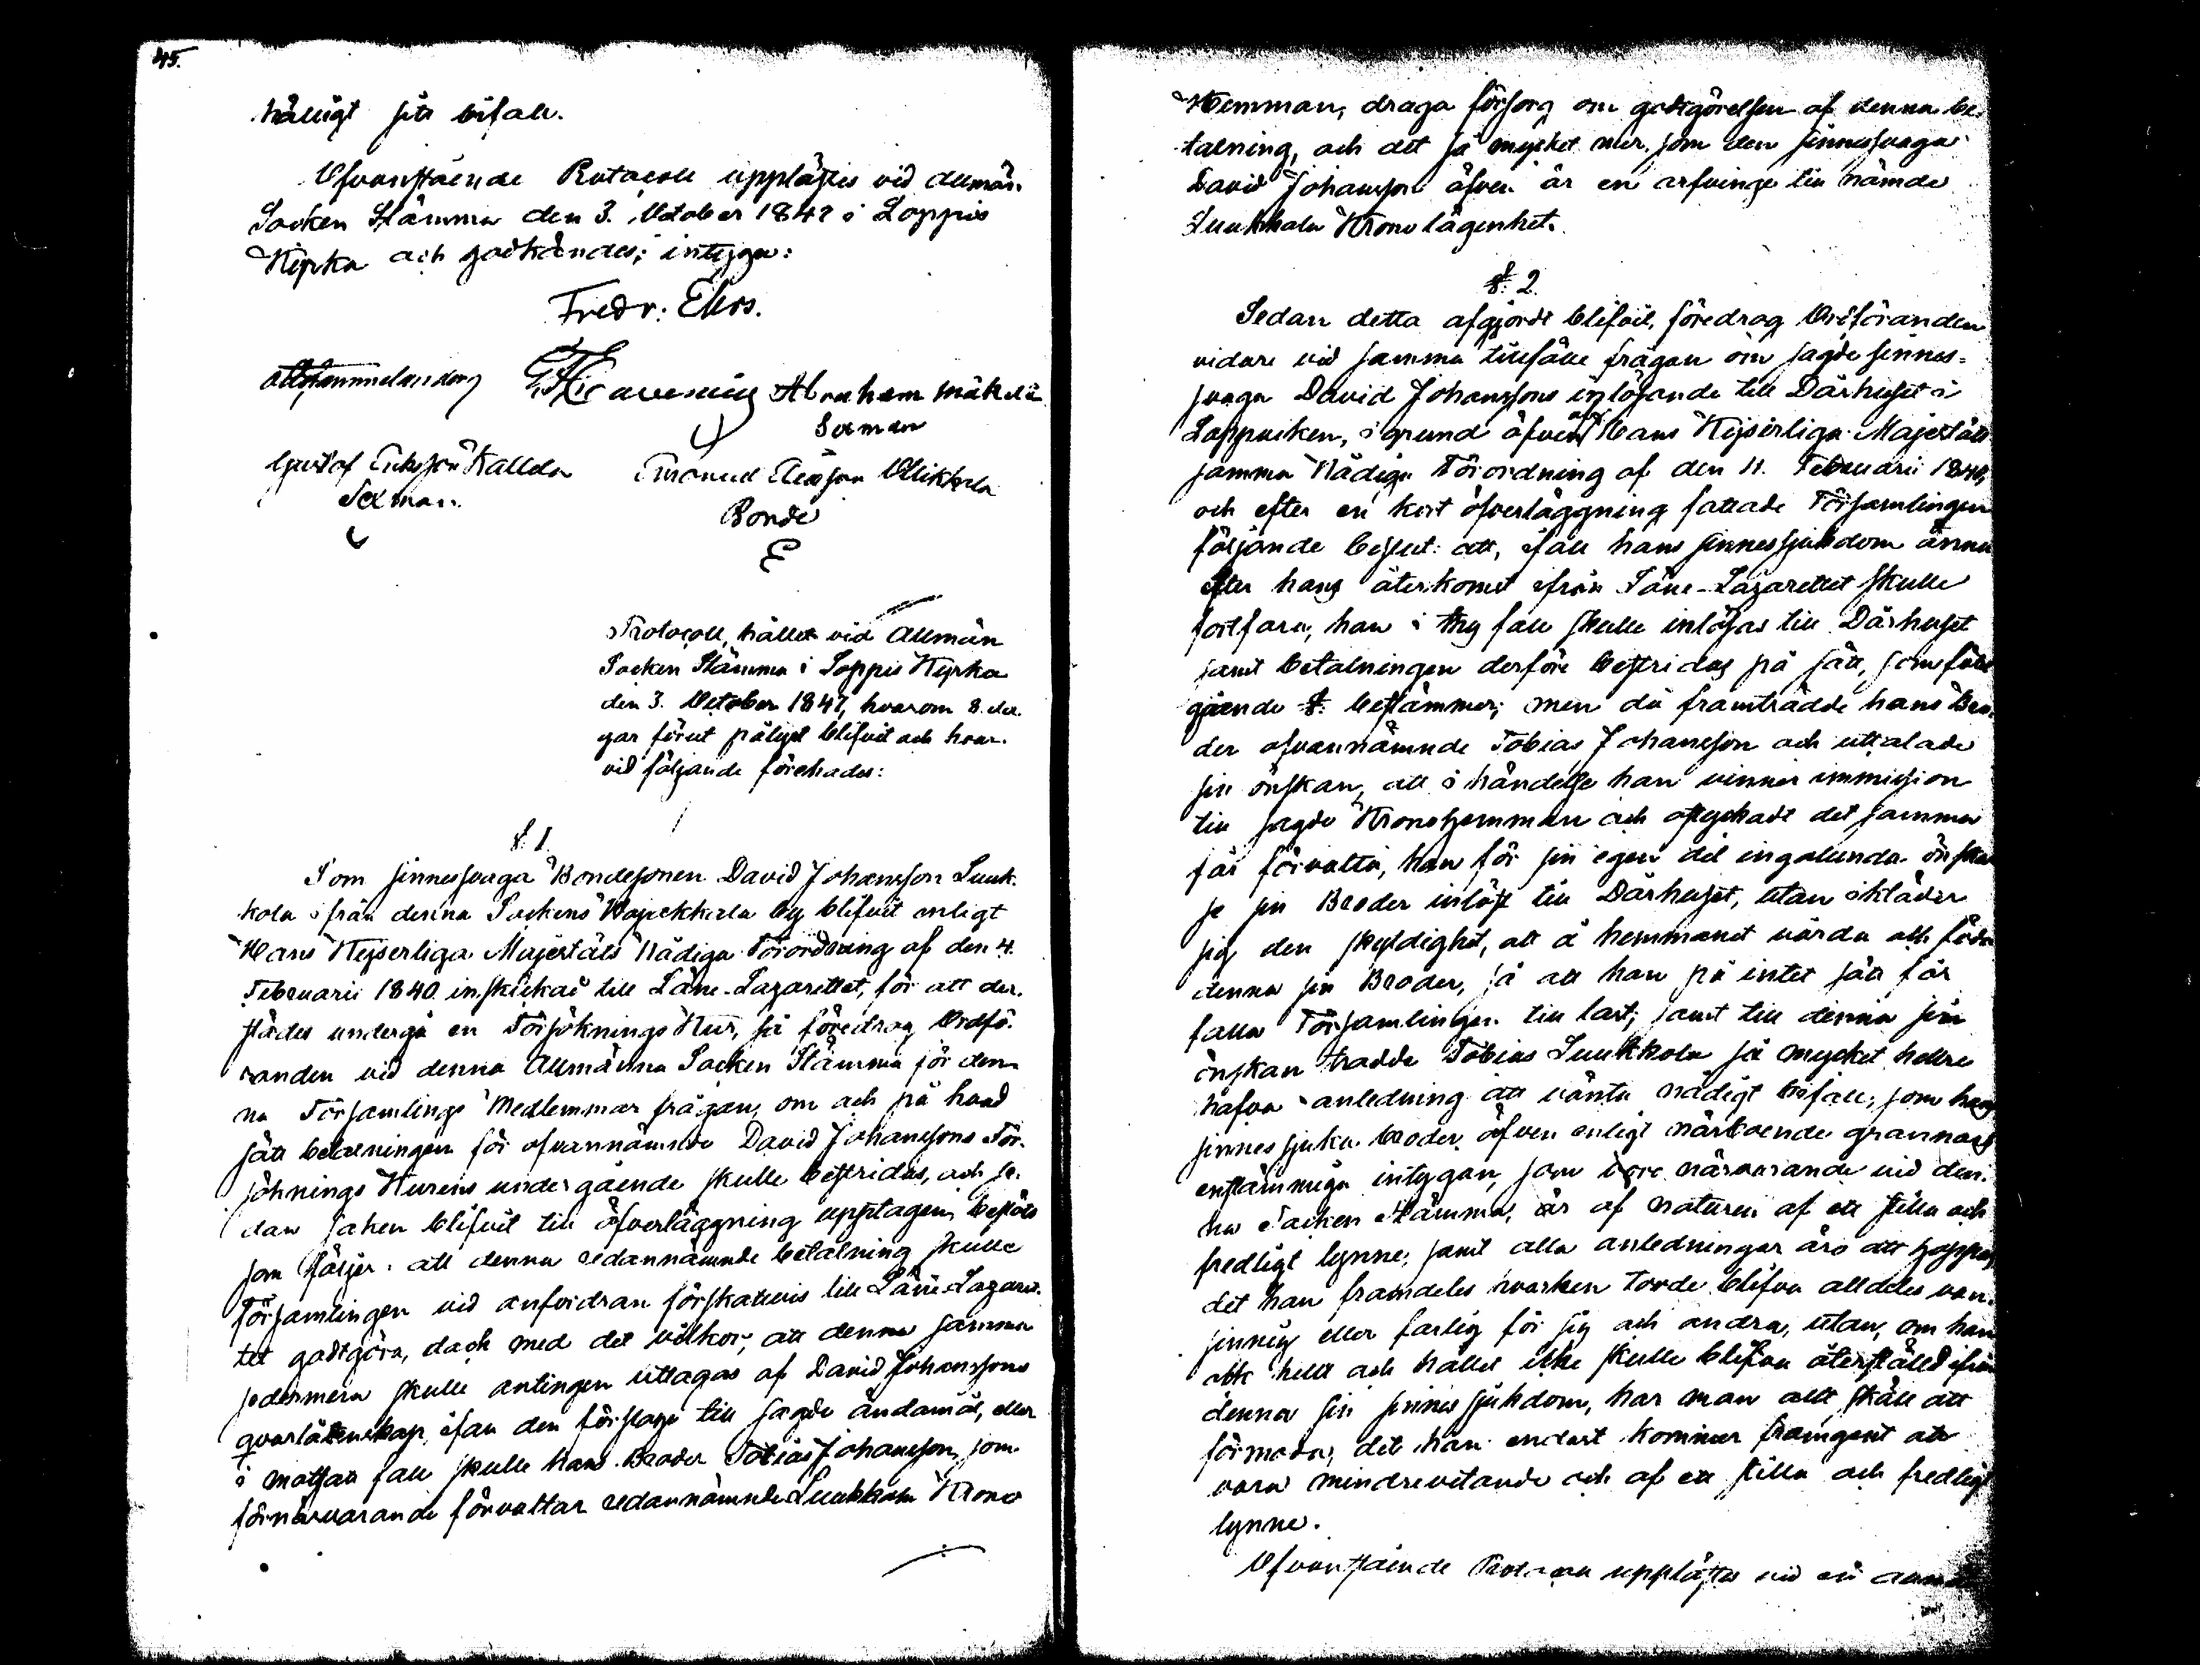 45.
hälligt sitt bifall.
Ofvanstående Protocoll upplästes vid Allmän
Socken Stämma den 3. October 1847 i Loppis
Kyrka och godkändes; intyga:
Fredr: Ekros.
Abraham Mäkelä
Sexman
Gustaf Ericksson Kallela
Sexman.
Emanuel Ollikkala
Bonde
E
Protocoll, hållet vid Allmän
Socken Stämma i Loppis Kyrka
den 3. October 1847, hvarom 8. da-
gar förut pålyst blifvit och hvar-
vid följande förehades:
§. 1.
Som sinnessvaga Bondesonen David Johansson Luuk-
kola ifrån denna Sockens Wojakkala by blifvit enligt
Hans Kejserliga Majestäts Nådiga Förordning af den 4.
Februarii 1840 inskickad till Läns-Lazarettet, för att der-
städes undergå en Försöknings Kur, så föredrog Ordfö-
randen vid denna Allmänna Socken Stämma för den-
na Församlings Medlemmar frågan, om och på hvad
sätt betalningen för ofvannämnde David Johanssons För-
söknings Kurens undergående skulle bestridas, och se-
dan saken blifvit till öfverläggning upptagen, beslöts
som följer: att denna redannämnde betalning skulle
Församlingen vid anfordran förskottsvis till Läns-Lazaret-
tet godtgöra, dock med det vilkor, att denna samma
sedermera skulle antingen uttagas af David Johanssons
qvarlåtenskap, ifall den försloge till sagde ändamål, eller
i motsatt fall skulle hans Broder Tobias Johansson, som
förnärvarande förvaltar redannämnde Luukkola Krono
Hemman, draga försorg om godtgörelsen af denna be-
talning, och det så mycket mer, som den sinnessvaga
David Johansson äfven är en arfvinge till nämde
Luukkola Kronolägenhet.
§. 2.
Sedan detta afgjordt blifvit, föredrog Ordföranden
vidare vid samma tillfälle frågan om sagde sinnes-
svaga David Johanssons inlösande till Dårhuset i
Lappviken, i grund äfven af Hans Kejserliga Majestäts
samma Nådiga Förordning af den 4. Februarii 1840,
och efter en kort öfverläggning fattade Församlingen
följande beslut: att, ifall hans sinnessjukdom ännu
efter hans återkomst ifrån Läns-Lazarettet skulle
fortfara, han i thy fall skulle inlösas till Dårhuset
samt betalningen derföre bestridas på sätt, som före-
gående §. bestämmer; men då framträdde hans Bro-
der ofvannämnde Tobias Johansson och uttalade
sin önskan, att i händelse han vinner immission
till sagde Kronohemman och ostyckadt det samma
får förvalta, han för sin egen del ingalunda önskar
se sin Broder inlöst till Dårhuset, utan ikläder
sig den skyldighet, att å hemmanet vårda och föda
denna sin Broder, så att han på intet sätt får
falla Församlingen till last; samt till denna sin
önskan trodde Tobias Luukkola så mycket hellre
hafva anledning att vänta nådigt bifall, som hans
sinnessjuka broder, äfven enligt närboende grannars
enstämmiga intygan, som voro närvarande vid den-
na Socken Stämma, är af naturen af ett stilla och
fredligt lynne, samt alla anledningar äro att hoppas,
det han framdeles hvarken torde blifva alldeles van-
sinnig eller farlig för sig och andra, utan, om han
ock helt och hållet icke skulle blifva återställd ifrån
denna sin sinnessjukdom, har man allt skäl att
förmoda, det han endast kommer framgent att
vara mindrevetande och af ett stilla och fredligt
lynne.
Ofvanstående Protocoll upplästes vid en